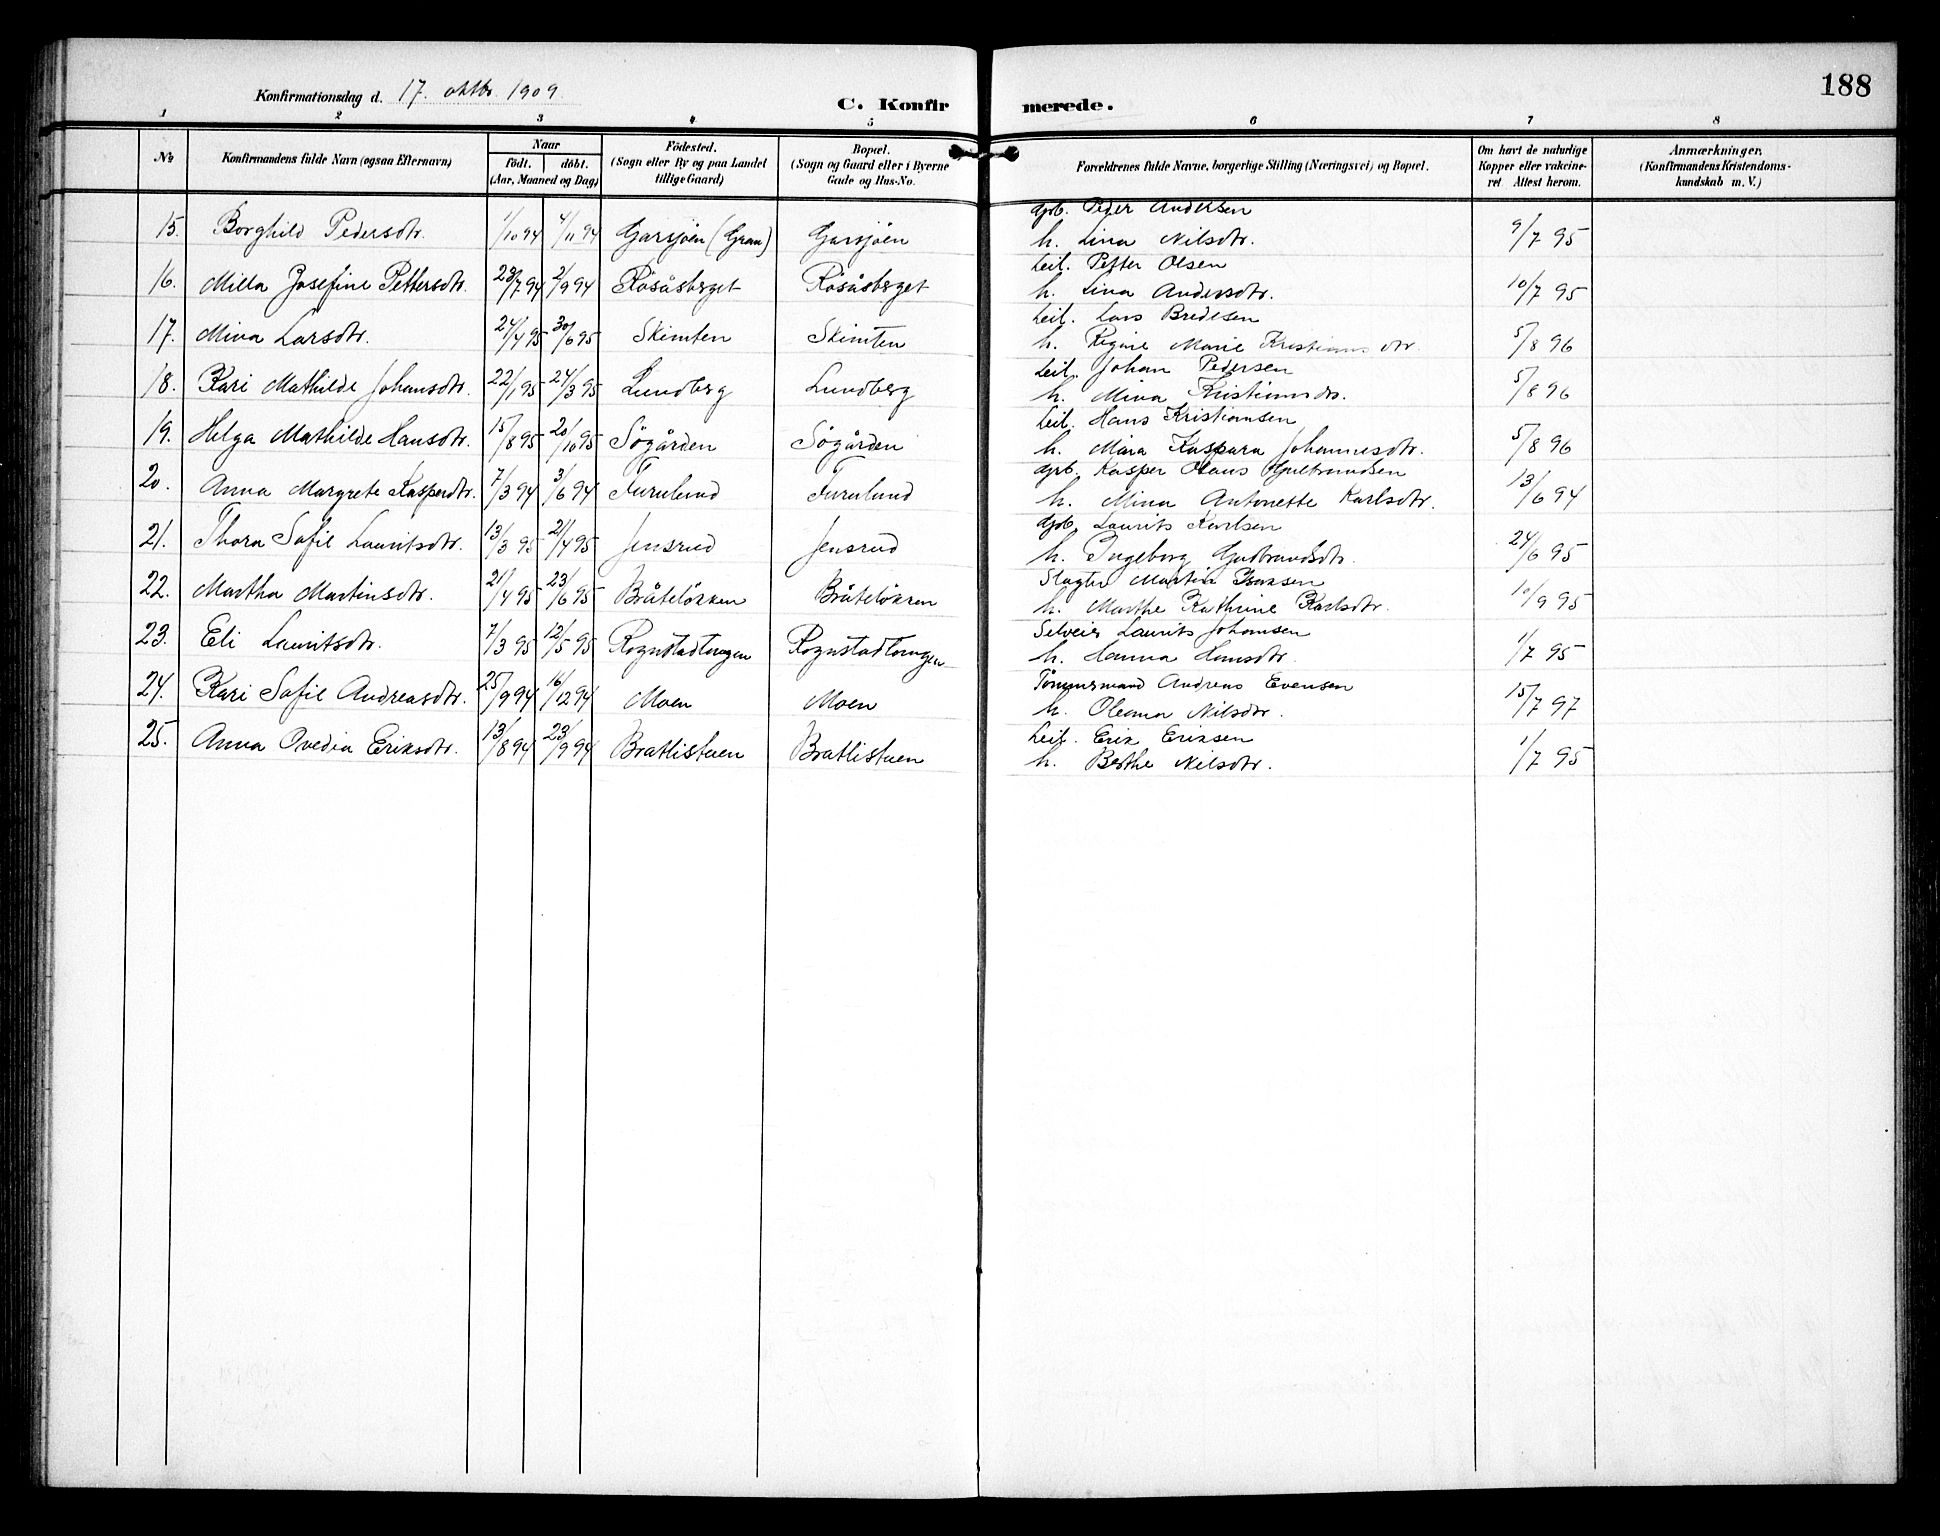 188
Konfirmationsdag d. 17. oktbr. 1909
C. Konfirmerede.
1 2 3 4 5 6 7 8
No
Konfirmandens fulde Navn (ogsaa Efternavn)
Naar
födt. döbt.
(Aar, Maaned og Dag)
Födested.
(Sogn eller By og paa Landet
tillige Gaard)
Bopæl.
(Sogn og Gaard eller i Byerne
Gade og Hus-No.
Forældrenes fulde Navne, borgerlige Stilling (Næringsvei) og Bopæl.
Om havt de naturlige
Kopper eller vakcine-
ret Attest herom.
Anmærkninger,
(Konfirmandens Kristendoms-
kundskab m. V.)
Gbr. Peder Andersen
15. Borghild Pedersdtr. 1/10 94 4/11 94 Garsjöen (Gran) Garsjöen h. Lina Nilsdtr. 9/7 95
Leil. Petter Olsen
16. Milla Josefine Pettersdtr. 23/7 94 2/9 94 Rösåsberget Rösåsberget h. Lina Andersdtr. 10/7 95
Leil. Lars Bredesen
17. Mina Larsdtr. 24/4 95 30/6 95 Skimten Skimten h. Regine Marie Kristians dtr. 5/8 96
Leil. Johan Pedersen
18. Kari Mathilde Johansdtr. 22/1 95 24/3 95 Lundberg Lundberg h. Mina Kristiansdtr. 5/8 96
Leil. Hans Kristiansen
19. Helga Mathilde Hansdtr. 15/8 95 20/10 95 Sögården Sögården h. Mina Kaspara Johannesdtr. 5/8 96
Gbr. Kasper Olaus Gulbrandsen
20. Anna Margrete Kasperdtr. 7/3 94 3/6 94 Furulund Furulund h. Mina Antonette Karlsdtr. 13/6 94
Gbr. Laurits Karlsen
21. Thora Sofie Lauritsdtr. 13/3 95 21/4 95 Jensrud Jensrud h. Ingeborg Gudbrandsdtr. 24/6 95
Slagter Martin Isaksen
22. Martha Martinsdtr. 21/4 95 23/6 95 Bråtelökken Bråtelökken h. Marthe Kathrine Karlsdtr. 10/9 95
Selveier Laurits Johansen
23. Eli Lauritsdtr. 7/3 95 12/5 95 Rognstadtangen Rognstadtangen h. Hanna Hansdtr. 1/7 95
Tömmermand Andreas Evensen
24. Kari Sofie Andreasdtr. 25/9 94 16/12 94 Moen Moen h. Oleana Nilsdtr. 15/7 97
Leil. Erik Eriksen
25. Anna Ovedia Eriksdtr. 13/8 94 23/9 94 Bratlistuen Bratlistuen h. Berthe Nilsdtr. 1/7 95